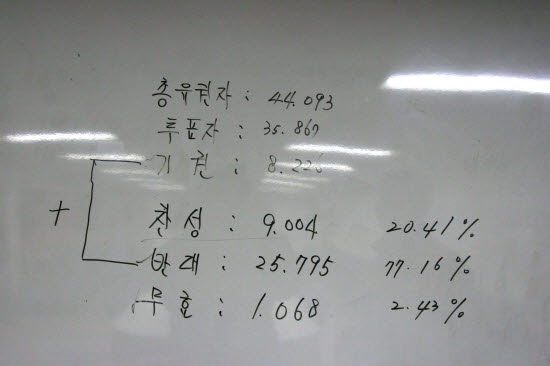 총유권자 : 44.093
투표자 : 35.867
기권 : 8.226
+
찬성 : 9.004 20.41%
반대 : 25.795 77.16%
무효 : 1.068 2.43%